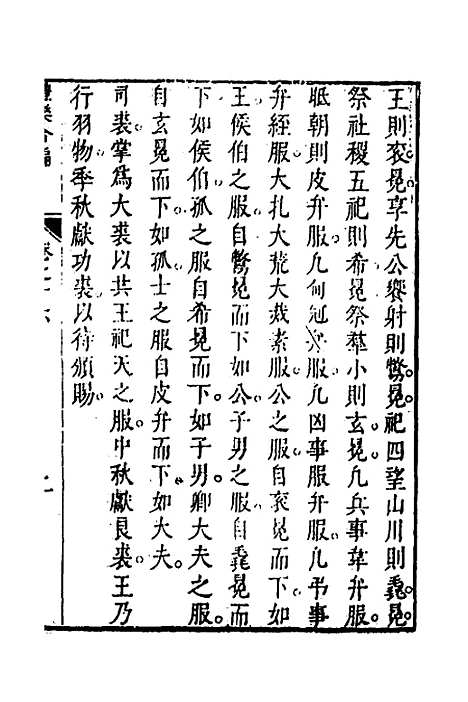 王則衮冕享先公饗射則鷩冕祀四望山川則毳冕
祭社稷五祀則希冕祭羣小則玄冕凡兵事韋弁服
眡朝則皮弁服凡甸冠弁服凡凶事服弁服凡弔事
弁絰服大札大荒大烖素服公之服自衮冕而下如
王侯伯之服自鷩冕而下如公子男之服自毳冕而
下如侯伯孤之服自希冕而下如子男卿大夫之服
自玄冕而下如孤士之服自皮弁而下如大夫
司裘掌爲大裘以共王祀天之服中秋獻良裘王乃
行羽物季秋獻功裘以待頒賜
禮樂合編
卷之十六